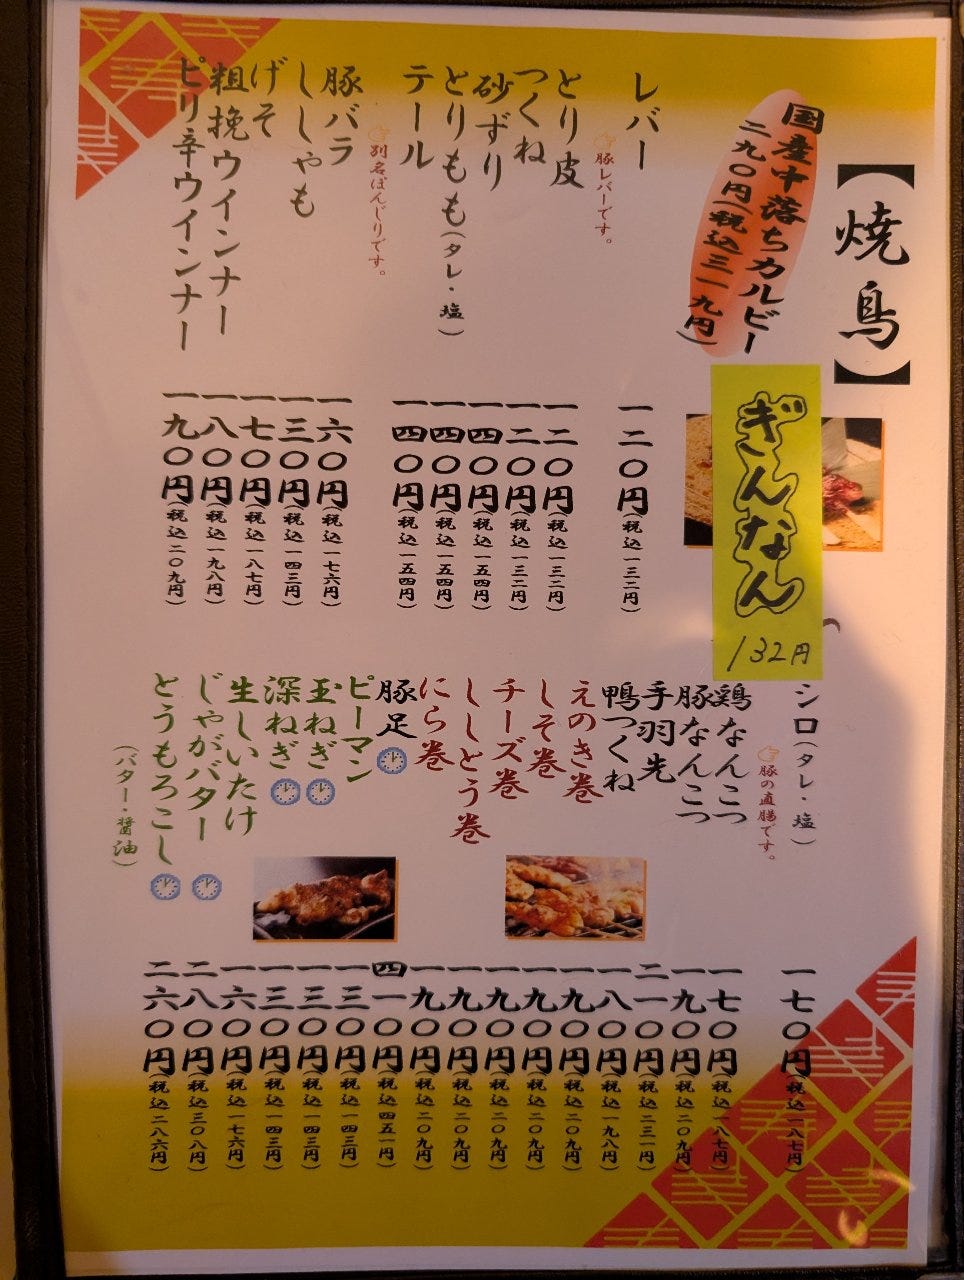 【焼鳥】
国産中落ちカルビー
二九〇円(税込三一九円)
ぎんなん
132円
レバー 一二〇円(税込一三二円)
豚レバーです。
とり皮 一二〇円(税込一三二円)
つくね 一二〇円(税込一三二円)
砂ずり 一四〇円(税込一五四円)
とりもも(タレ・塩) 一四〇円(税込一五四円)
テール 一四〇円(税込一五四円)
別名ぼんじりです。
豚バラ 一六〇円(税込一七六円)
ししゃも 一三〇円(税込一四三円)
げそ 一七〇円(税込一八七円)
粗挽ウインナー 一八〇円(税込一九八円)
ピリ辛ウインナー 一九〇円(税込二〇九円)
シロ(タレ・塩) 一七〇円(税込一八七円)
豚の直腸です。
鶏なんこつ 一七〇円(税込一八七円)
豚なんこつ 一九〇円(税込二〇九円)
手羽先 二一〇円(税込二三一円)
鴨つくね 一八〇円(税込一九八円)
えのき巻 一九〇円(税込二〇九円)
しそ巻 一九〇円(税込二〇九円)
チーズ巻 一九〇円(税込二〇九円)
ししとう巻 一九〇円(税込二〇九円)
にら巻 一九〇円(税込二〇九円)
豚足 四一〇円(税込四五一円)
ピーマン 一三〇円(税込一四三円)
玉ねぎ 一三〇円(税込一四三円)
深ねぎ 一三〇円(税込一四三円)
生しいたけ 一六〇円(税込一七六円)
じゃがバター 二八〇円(税込三〇八円)
とうもろこし 二六〇円(税込二八六円)
(バター・醤油)